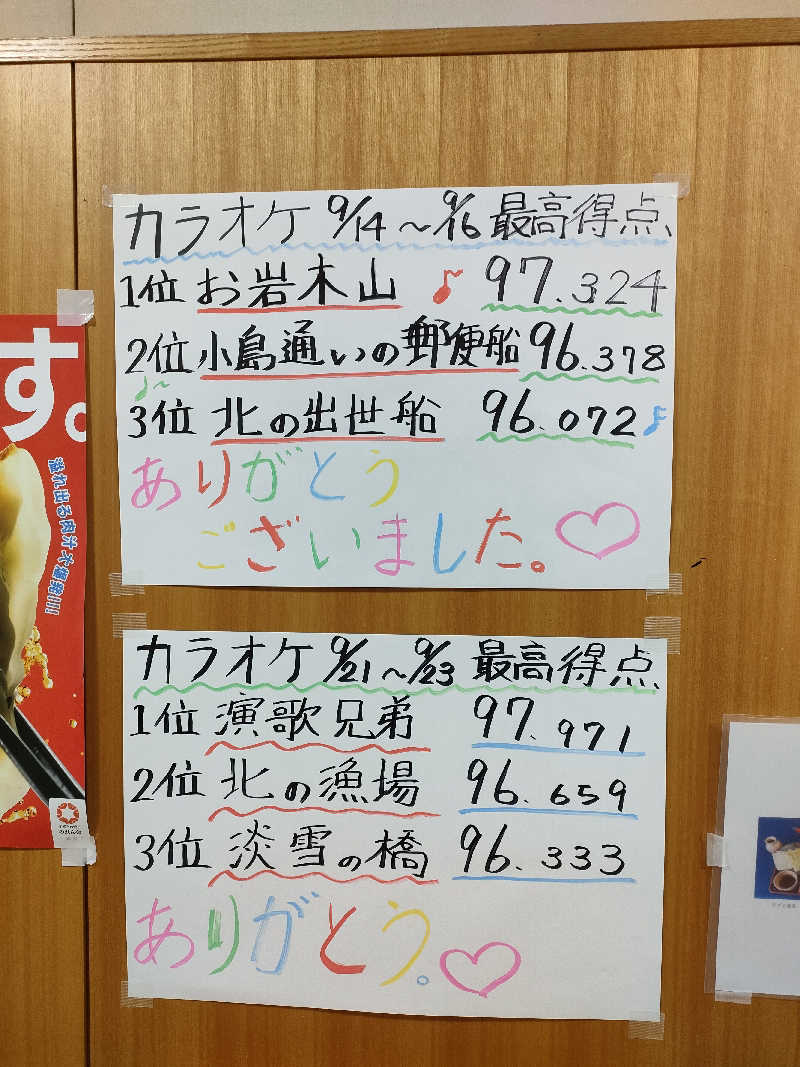 カラオケ 9/14～9/16 最高得点
1位 お岩木山 ♪ 97.324
2位 小島通いの郵便船 96.378
3位 北の出世船 96.072 ♪
ありがとう
ございました。
カラオケ 9/21～9/23 最高得点
1位 演歌兄弟 97.971
2位 北の漁場 96.659
3位 淡雪の橋 96.333
ありがとう。
す。
溢れ出る肉汁大爆発!!!!